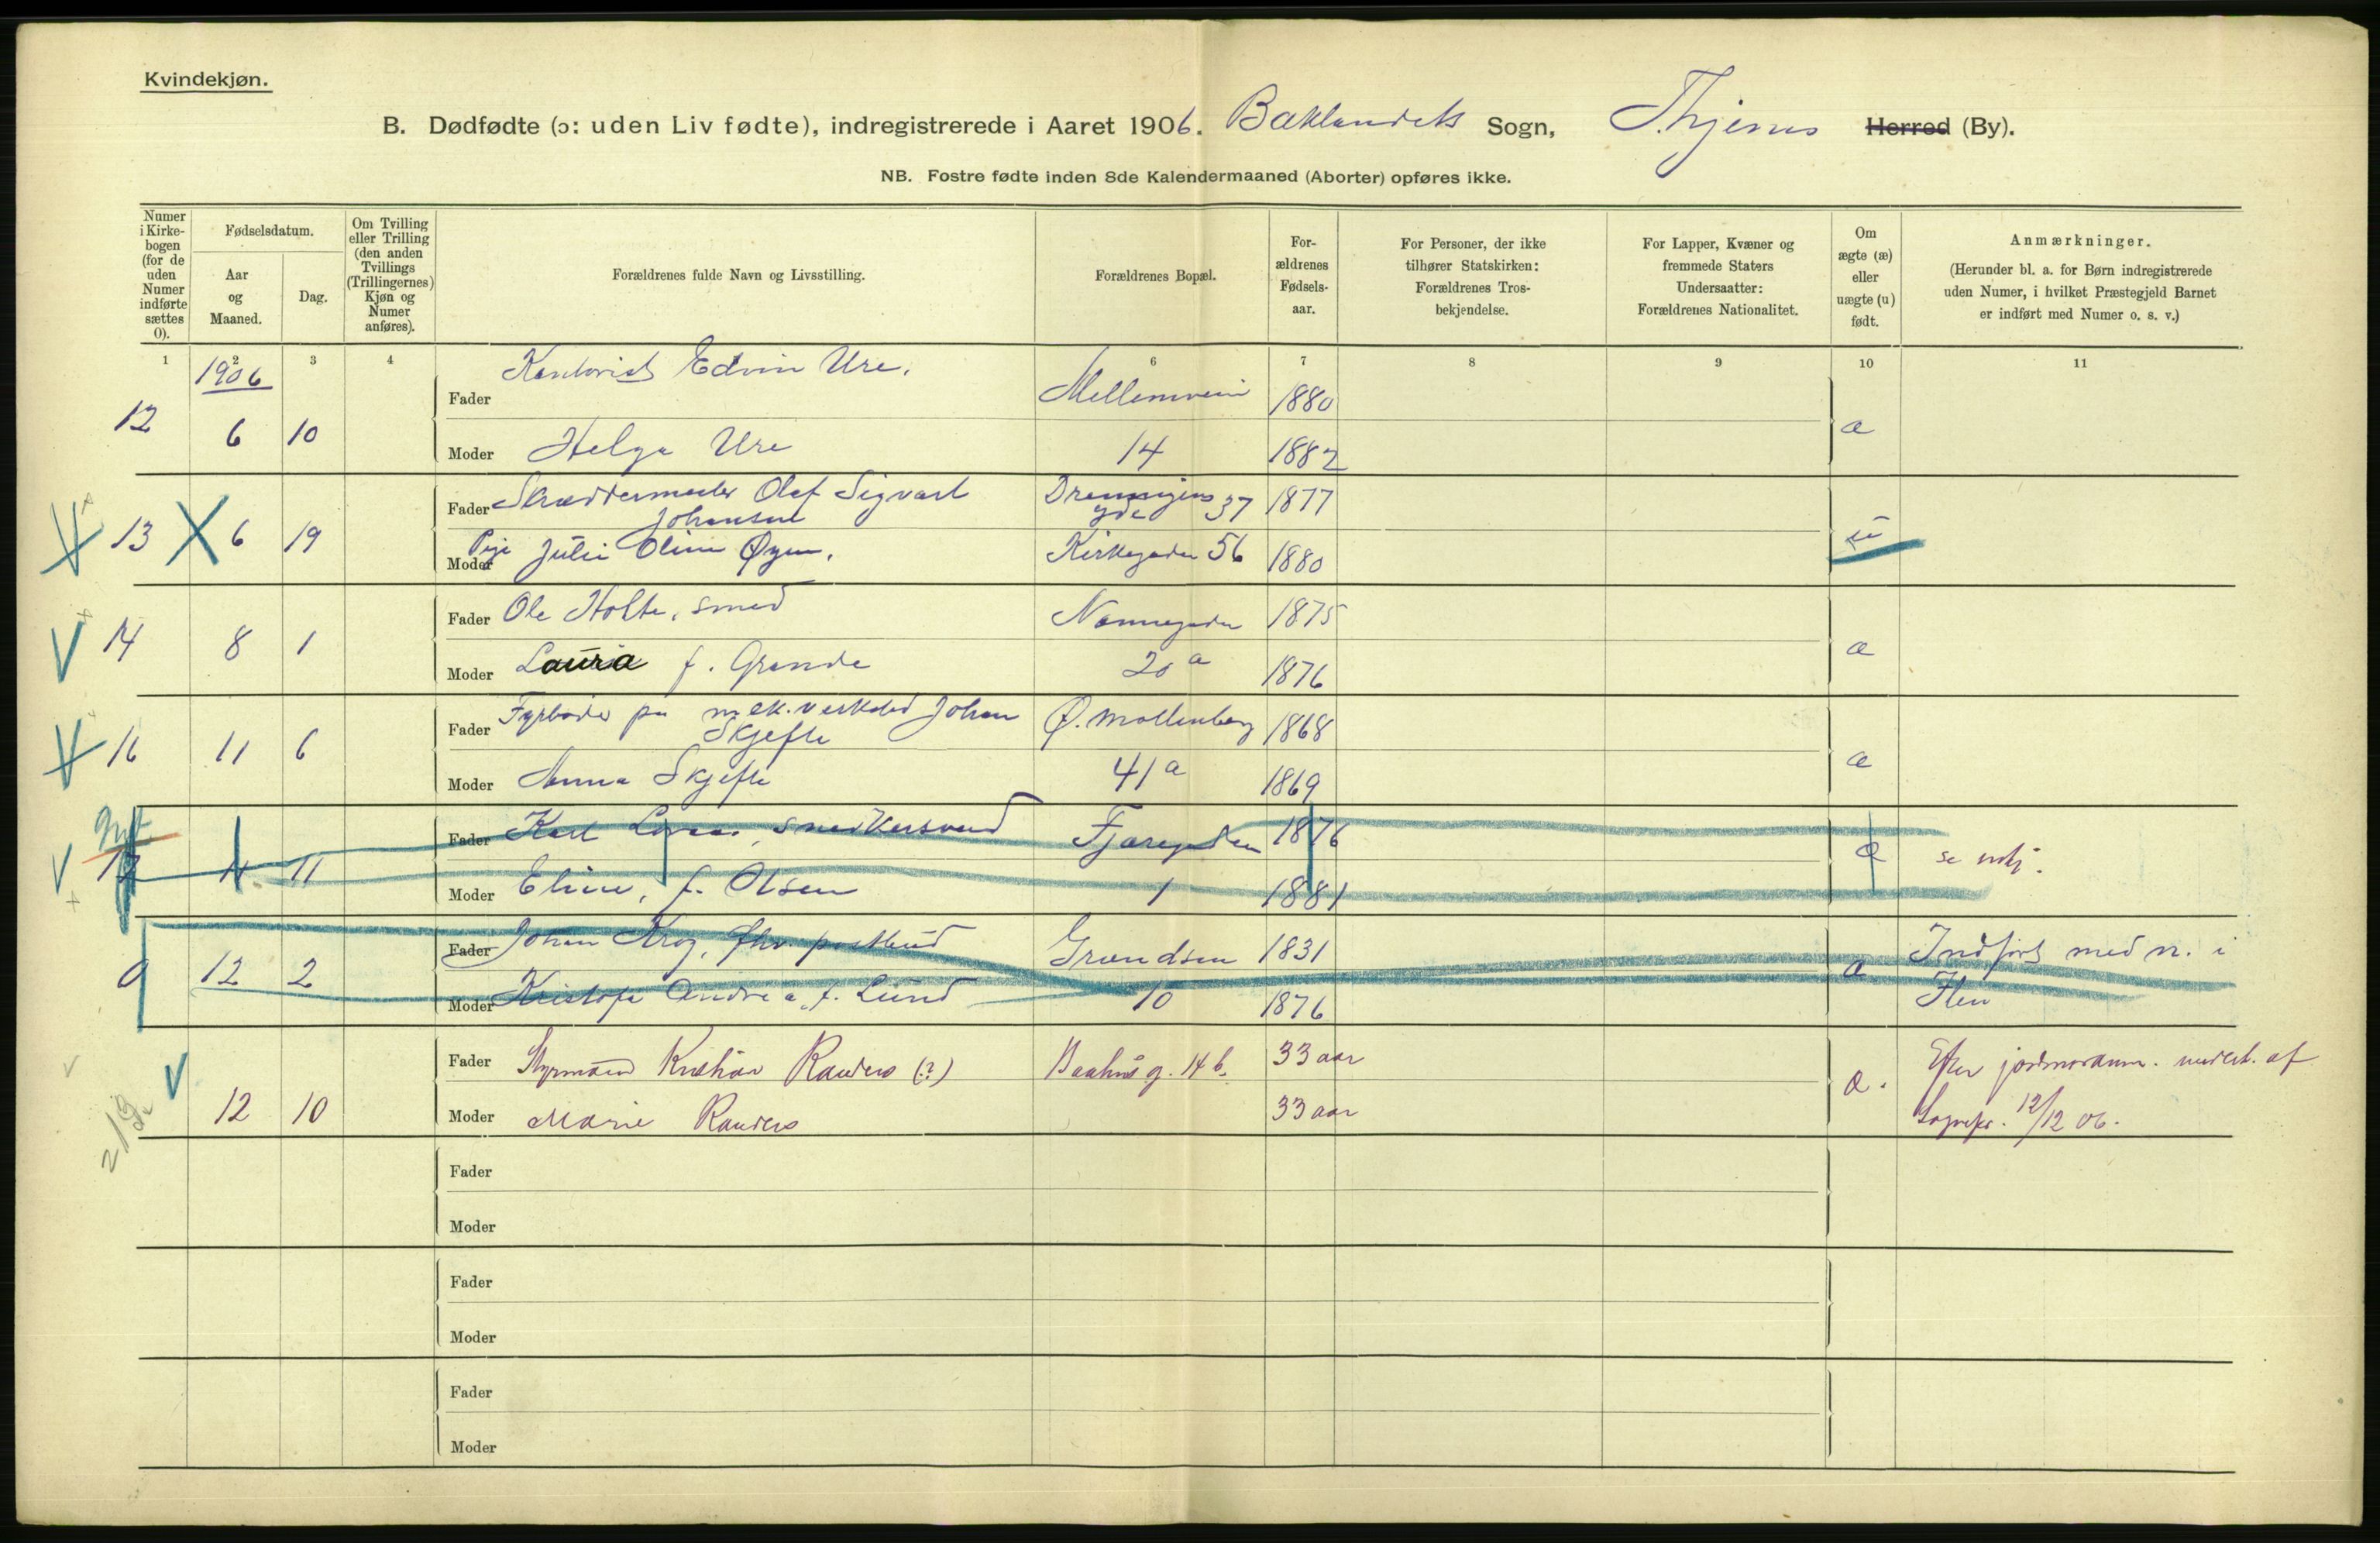 Kvindekjøn.
B. Dødfødte (ɔ: uden Liv fødte), indregistrerede i Aaret 1906. Baklandets Sogn, Thjems Herred (By).
NB. Fostre fødte inden 8de Kalendermaaned (Aborter) opføres ikke.
Numer i Kirkebogen (for de uden Numer indførte sættes 0).
Fødselsdatum.
Aar og Maaned.
Dag.
Om Tvilling eller Trilling (den anden Tvillings (Trillingernes) Kjøn og Numer anføres).
Forældrenes fulde Navn og Livsstilling.
Forældrenes Bopæl.
Forældrenes Fødselsaar.
For Personer, der ikke tilhører Statskirken: Forældrenes Trosbekjendelse.
For Lapper, Kvæner og fremmede Staters Undersaatter: Forældrenes Nationalitet.
Om ægte (æ) eller uægte (u) født.
Anmærkninger.
(Herunder bl. a. for Børn indregistrerede uden Numer, i hvilket Præstegjeld Barnet er indført med Numer o. s. v.)
1 2 3 4 6 7 8 9 10 11
1906
Fader Kontorist Edvin Ure. Mellemveien 1880
12 6 10 æ
Moder Helga Ure 14 1882
Fader Skræddermester Olaf Sigvart Johansen 37 1877
13 6 19
Moder Pige Julie Oline Øyen. Kirkegaden 56 1880
Fader Ole Holte, smed Nonnegaden 1875
14 8 1 æ
Moder Laura f. Grande 20 a 1876
Fader Fyrbøder på mek. verksted Johan Skjefte Ø. Møllenberg 1868
16 11 6 æ
Moder Anna Skjefte 41 a 1869
Fader Karl snedkersvend Fjæregaden 1876
17 11 11 æ se
Moder Eline, f. Olsen 1 1881
Fader Johan Krog, fhv. postbud Grændsen 1831
0 12 2 æ Indført med n. i Ilen
Moder Andrea f. Lund 10 1876
Fader Styrmand Kristian Randers (?) Baahus g. 14 b. 33 aar
12 10 æ. Efter jordmoderanm. af Sognepr. 12/12 06.
Moder Marie Randers 33 aar
213
Fader
Moder
Fader
Moder
Fader
Moder